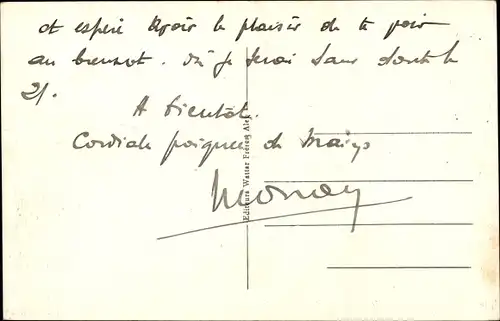 et espère avoir le plaisir de te voir
au . où je serai sans doute le
21.
A bientôt.
Cordiale poignée de Mains
Editeurs Wattar Frères Alep